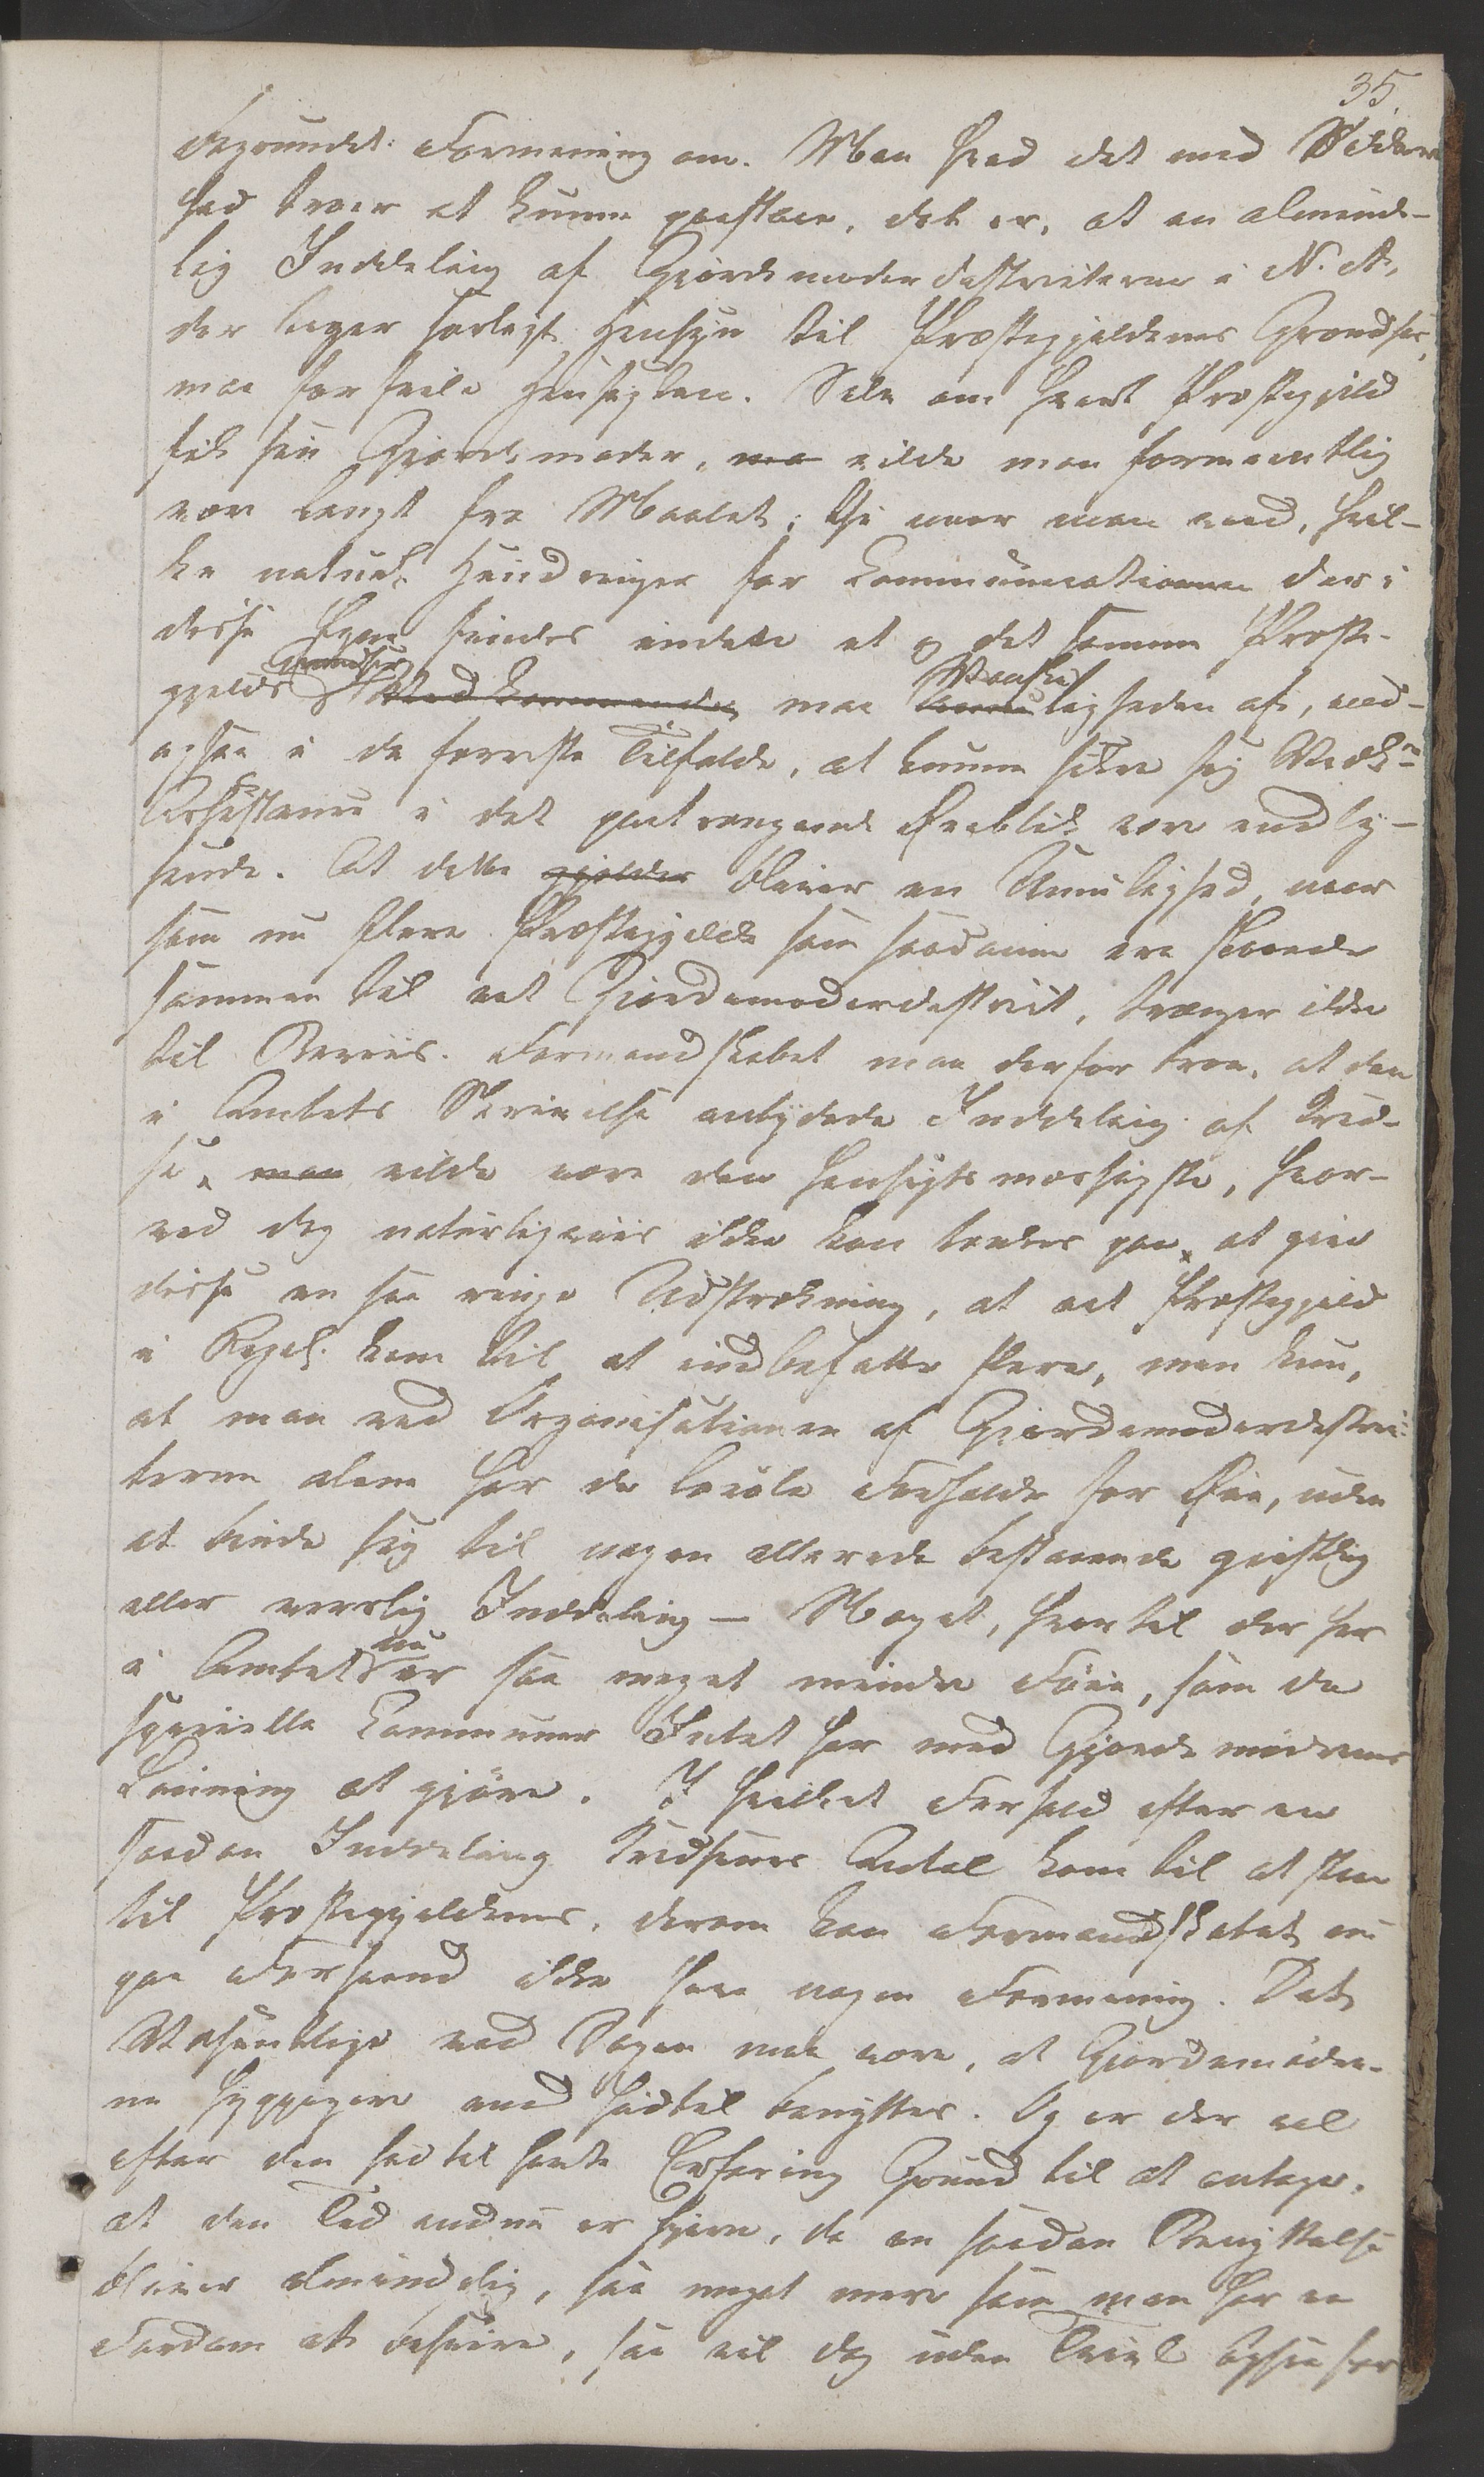 35.
begrundet Formening om. Men hvad det med Vedkom
hed troer at kunne paastaae, det er, at en alminde-
lig Inddeling af Gjordemoderdistricterne i N. A.,
der tager særligst Hensyn til Præstegjeldenes Grændser,
maa forfeile Hensigten. Selv om hvert Præstegjeld
fik sin Gjordemoder, maa vilde man formeentlig
være langt fra Maalet; thi naar man veed, hvil-
ke naturl. Hindringer for Communicationen der i
disse Egne findes indtil et og det samme Præste-
gjelds Grændser, maa Vanskeligheden af, end-
ogsaa i de færreste Tilfælde, at kunne sikre sig Vedk.
Assistance i det paatrængende Øieblik være indly-
sende. At dette gjelder bliver en Umulighed, naar
som nu flere Præstegjelde som saadanne ere slaaede
sammen til eet Gjordemoderdistrict, trænger ikke
til Beviis. Formandskabet maa derfor troe, at den
i Amtets Skrivelse antydede Inddeling af Kred-
se, maa vilde være den hensigtsmæssigste, hvor-
ved dog naturligviis ikke kan tænkes paa, at give
disse en saa ringe Udstrækning, at eet Præstegjeld
i Regel. kom til at indbefatte flere, men kun,
at man ved Organisationen af Gjordemoderdistric-
terne alene har de locale Forholde for Øie, uden
at binde sig til nogen allerede bestaaende geistlig
eller verslig Inddeling – Noget, hvortil der her
i Amtet nu er saa meget mindre Føie, som de
specielle Communer Intet har med Gjordemødrenes
Lønning at gjøre. I hvilket Forhold efter en
saadan Inddeling Kredsenes Antal kom til at staae
til Præstegjeldenes, derom kan Formandskabet nu
paa Forhaand ikke have nogen Formening. Det
Væsentlige ved Sagen maa være, at Gjordemødre-
ne hyppigere end hidtil benyttes. Og er der vel
efter den hidtil havte Erfaring Grund til at antage,
at den Tid endnu er fjern, da en saadan Benyttelse
bliver almindelig, saa meget mere som man har en
Fordom at beseire, saa vil dog uden Tvivl